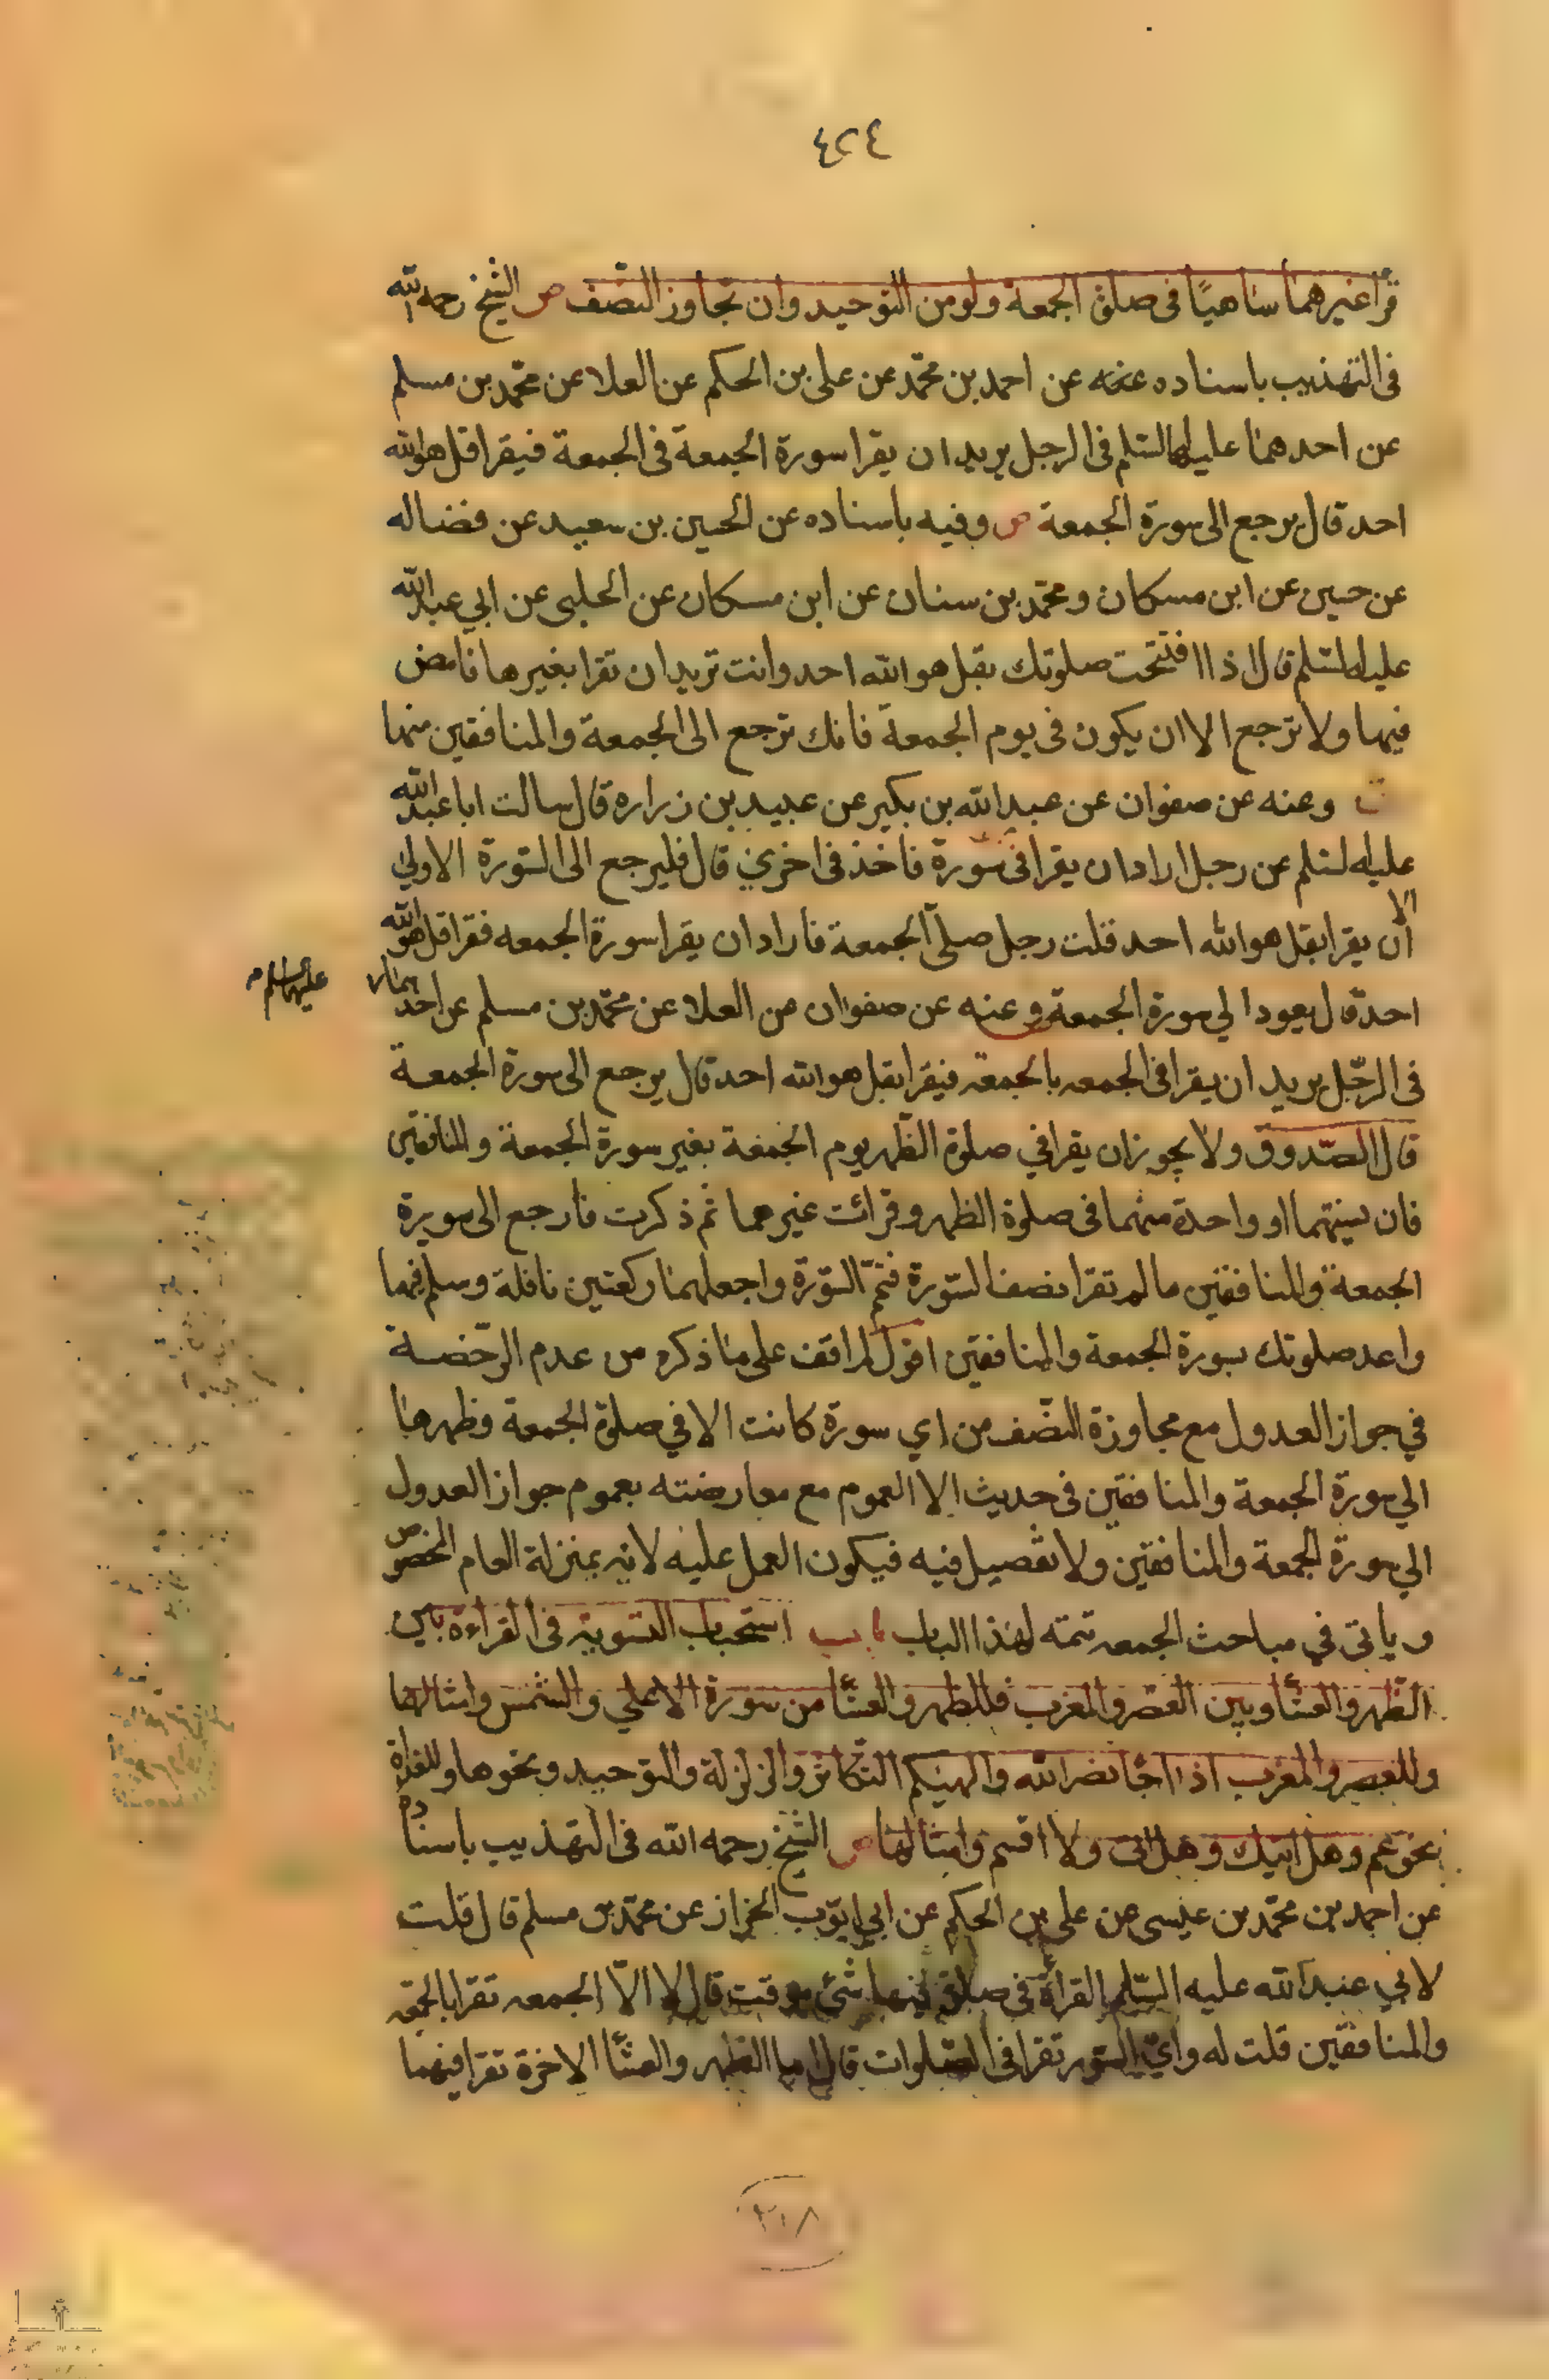 ٤٢٤
قرا غيرهما ساهيًا فى صلوة الجمعة ولو من التوحيد وان تجاوز النصف ص الشيخ رحمه الله
فى التهذيب باسناده عنه عن احمد بن محمّد عن على بن الحكم عن العلا عن محمّد بن مسلم
عن احدهما عليهما السّلم فى الرجل يريد ان يقرا سورة الجمعة فى الجمعة فيقرا قل هو الله
احد قال يرجع الى سورة الجمعة ص وفيه باسناده عن الحسين بن سعيد عن فضاله
عن حسين عن ابن مسكان ومحمّد بن سنان عن ابن مسكان عن الحلبى عن ابي عبد الله
عليه السّلم قال اذا افتتحت صلوتك بقل هو الله احد وانت تريد ان تقرا بغيرها فامض
فيها ولا ترجع الا ان يكون فى يوم الجمعة فانك ترجع الى الجمعة والمنافقين منها
وعنه عن صفوان عن عبد الله بن بكير عن عبيد بن زراره قال سالت ابا عبد الله
عليه السلم عن رجل اراد ان يقرا فى سورة فاخذ فى اخرى قال فليرجع الى السّورة الاولي
الا
ان يقرا بقل هو الله احد قلت رجل صلى الجمعة فاراد ان يقرا سورة الجمعه فقرا قل هو الله
احد قال يعود الي سورة الجمعة وعنه عن صفوان عن العلا عن محمّد بن مسلم عن احدهما
عليهما السلم
فى الرّجل يريد ان يقرا فى الجمعه بالجمعة فيقرا بقل هو الله احد قال يرجع الى سورة الجمعة
قال الصّدوق ولا يجوز ان يقرا في صلوة الظّهر يوم الجمعة بغير سورة الجمعة والمنافقين
فان نسيتهما او واحدة منهما فى صلوة الظهر وقرائت غيرهما ثم ذكرت فارجع الى سورة
الجمعة والمنافقين ما لم تقرا نصف السّورة فتمّ السّورة واجعلهما ركعتين نافلة وسلم فيهما
واعد صلوتك بسورة الجمعة والمنافقين اقول لم اقف على ما ذكره من عدم الرّخصة
في جواز العدول مع مجاوزة النّصف من اي سورة كانت الا في صلوة الجمعة وظهرها
الي سورة الجمعة والمنافقين فى حديث الا العموم مع معارضته بعموم جواز العدول
الي سورة الجمعة والمنافقين ولا تفصيل فيه فيكون العمل عليه لانه بمنزلة العام المخصوص
وياتى في مباحث الجمعه تتمه لهذا الباب باب استحباب التسوية فى القراءة بين
الظّهر والعشا وبين العصر والمغرب فللظهر والعشّا من سورة الاعلي والشمس وامثالها
وللعصر والمغرب اذا جا نصر الله والهيكم التكاثر والزلزلة والتوحيد ونحوها وللغداة
بنحو عم وهل اتيك وهل اتى ولا اقسم وامثالها ص الشيخ رحمه الله فى التهذيب باسناده
عن احمد بن محمّد بن عيسى عن على بن الحكم عن ابي ايّوب الخراز عن محمّد بن مسلم قال قلت
لابي عبد الله عليه السّلم القراءة فى صلوة فيها شئ موقت قال لا الّا الجمعه تقرا بالجمعه
والمنافقين قلت له وايّ السّور تقرا فى الصّلوات قال اما الظهر والعشّا الاخرة تقرا فيهما
٢١٨